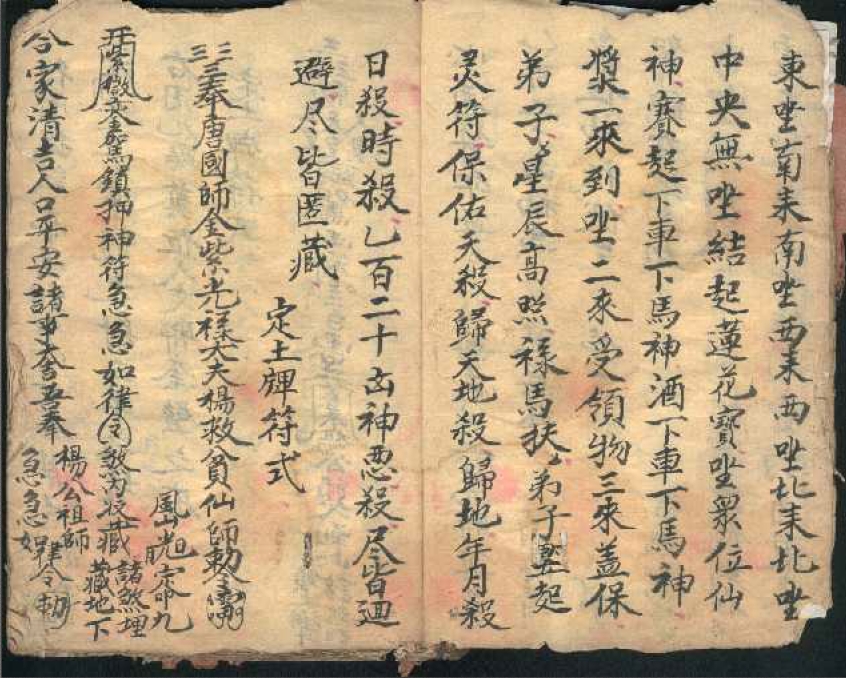 東坐南来南坐西来西坐北来北坐
中央無坐結起蓮花寳坐衆位仙
神賽起下車下馬神酒下車下馬神
奨一來到坐二來受領物三來盖保
弟子星辰高照禄馬扶弟子竪起
灵符保佑天殺歸天地殺歸地年月殺
日殺時殺乙百二十凶神悪殺尽皆廻
避尽皆匿藏
定土牌符式
奉唐國師金紫光禄大夫楊救貧仙師勅
押神符急急如律令
合家清吉人口平安諸事大吉奉
楊公祖師
急急如律令勅
諸煞埋
藏地下